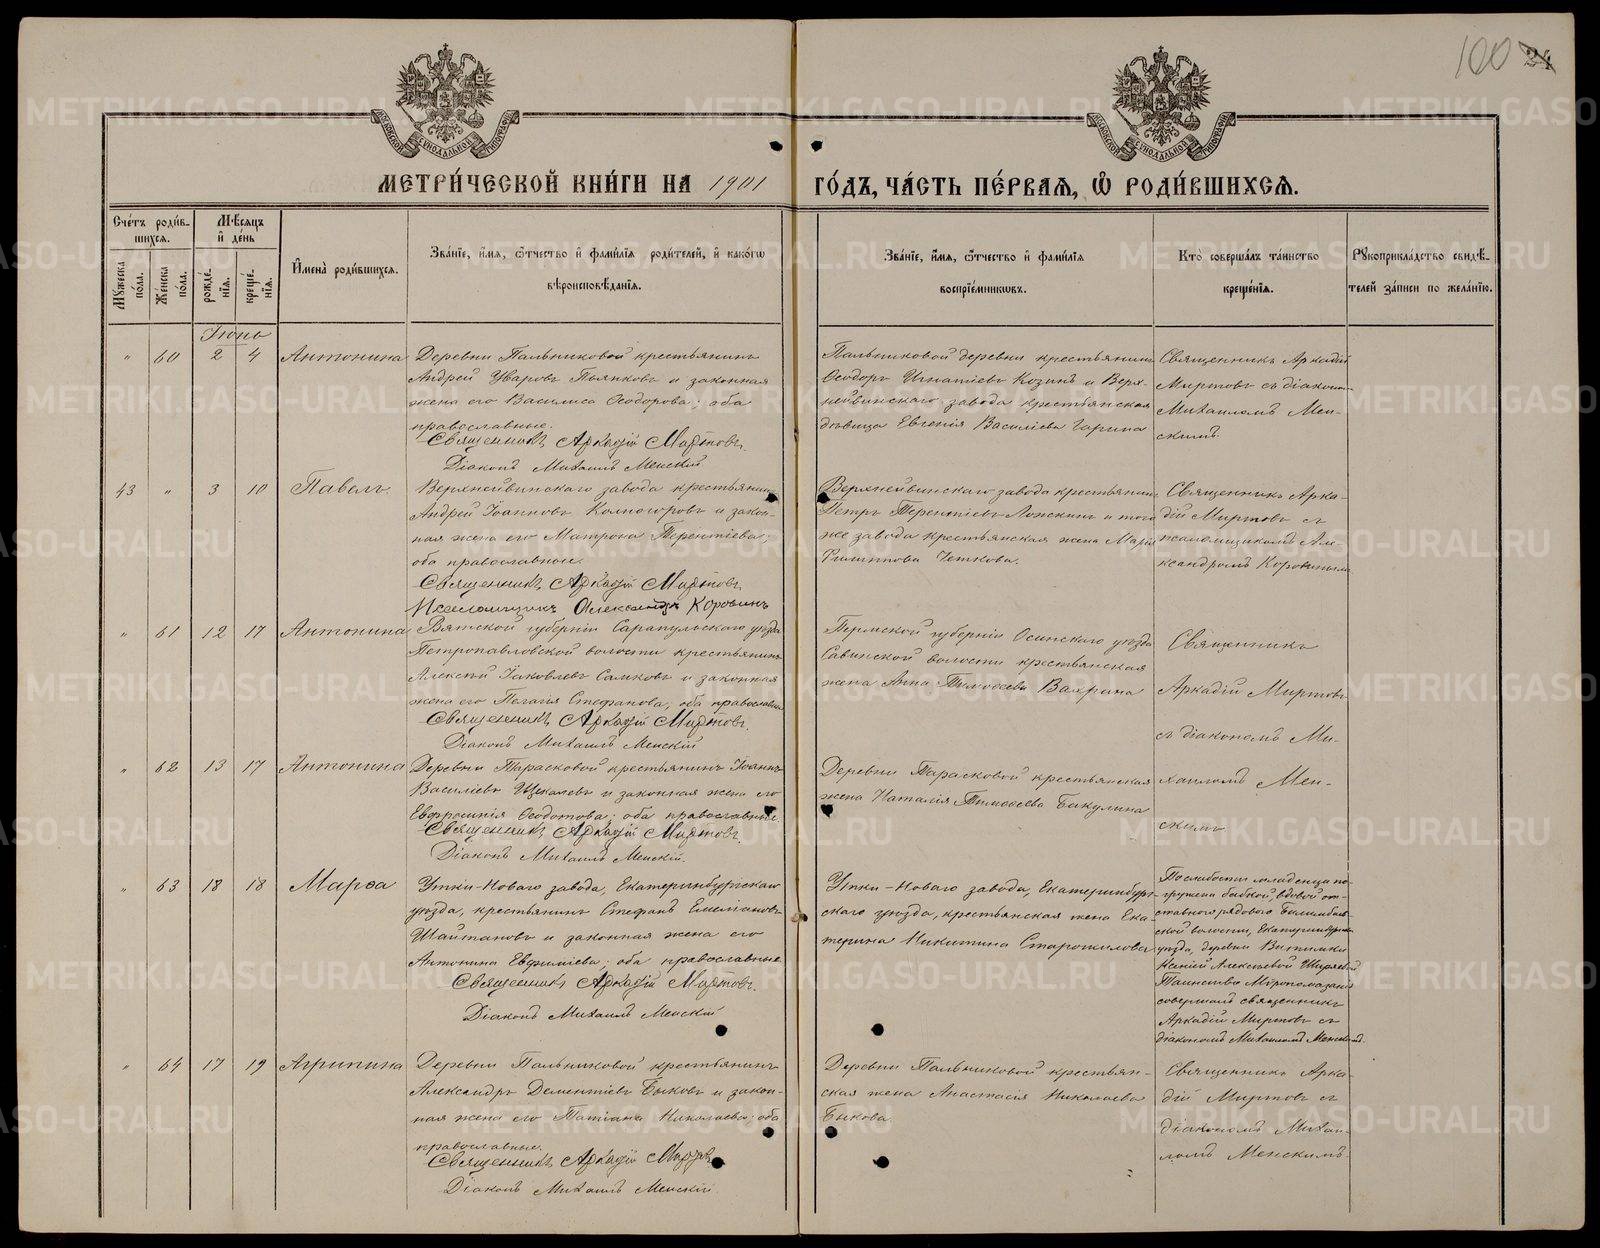 100 24
МОСКОВСКОЙ СѴНОДАЛЬНОЙ ТИПОГРАФІИ
МОСКОВСКОЙ СѴНОДАЛЬНОЙ ТИПОГРАФІИ
МЕТРИ́ЧЕСКОЙ КНИ́ГИ НА 1901 ГО́ДЪ, ЧА́СТЬ ПЕ́РВАѦ, Ѡ҆ РОДИ́ВШИХСѦ.
Сче́тъ роди́вшихсѧ.
Мꙋ́жеска по́ла.
Же́нска по́ла.
Мѣ́сѧцъ и҆ де́нь
рожде́нїѧ.
креще́нїѧ.
И҆мена̀ роди́вшихсѧ.
Зва́нїе, и҆́мѧ, ѻ҆́тчество и҆ фами́лїѧ роди́телей, и҆ како́гѡ
вѣроисповѣ́данїѧ.
Зва́нїе, и҆́мѧ, ѻ҆́тчество и҆ фами́лїѧ
воспрїе́мникѡвъ.
Кто̀ соверша́лъ та́инство
креще́нїѧ.
Рꙋкоприкла́дство свидѣ́-
телей за́писи по жела́нїю.
Іюнь
" 60 2 4 Антонина
Деревни Пальниковой крестьянинъ
Андрей Уваровъ Пьянковъ и законная
жена его Василиса Ѳеодорова; оба
православные.
Священникъ Аркадій Миртовъ.
Діаконъ Михаилъ Менскій
Пальниковой деревни крестьянинъ
Ѳеодоръ Игнатіевъ Козинъ и Верх-
нейвинскаго завода крестьянская
дѣвица Евгенія Василіева Гарина
Священникъ Аркадій
Миртовъ съ діакономъ
Михаиломъ Мен-
скимъ.
43 " 3 10 Павелъ
Верхнейвинскаго завода крестьянинъ
Андрей Іоанновъ Колногоровъ и закон-
ная жена его Матрона Терентіева;
оба православные.
Священникъ Аркадій Миртовъ.
Псаломщикъ Александръ Коровинъ
Верхнейвинскаго завода крестьянинъ
Петръ Терентіевъ Ложкинъ и того
же завода крестьянская жена Марія
Филиппова Четкова.
Священникъ Арка-
дій Миртовъ съ
псаломщикомъ Але-
ксандромъ Коровинымъ
" 61 12 17 Антонина
Вятской губерніи Сарапульскаго уѣзда
Петропавловской волости крестьянинъ
Алексѣй Іаковлевъ Самковъ и законная
жена его Пелагія Стефанова; оба православные
Священникъ Аркадій Миртовъ.
Діаконъ Михаилъ Менскій
Пермской губерніи Осинскаго уѣзда
Савинской волости крестьянская
жена Анна Тимоѳеева Вахрина
Священникъ
Аркадій Миртовъ
съ діакономъ Ми-
" 62 13 17 Антонина
Деревни Тарасковой крестьянинъ Іоаннъ
Василіевъ Щекалевъ и законная жена его
Евфросинія Ѳеодотова; оба православные.
Священникъ Аркадій Миртовъ.
Діаконъ Михаилъ Менскій.
Деревни Тарасковой крестьянская
жена Наталія Тимоѳеева Бикулина
хаиломъ Мен-
скимъ
" 63 18 18 Марѳа
Утки-Новаго завода, Екатеринбургскаго
уѣзда, крестьянинъ Стефанъ Емеліановъ
Шайтановъ и законная жена его
Антонина Евфиміева; оба православные
Священникъ Аркадій Миртовъ.
Діаконъ Михаилъ Менскій
Утки-Новаго завода, Екатеринбург-
скаго уѣзда, крестьянская жена Ека-
терина Никитина Старожилова
По слабости младенца по-
гружена бабкой, вдовой от-
ставного рядового Билимбаев-
ской волости, Екатеринбургск.
уѣзда, деревни Витимки
Ксеніей Алексѣевой Ширяевой
Таинство Мѵропомазанія
совершалъ священникъ
Аркадій Миртовъ съ
діакономъ Михаиломъ Менскимъ.
" 64 17 19 Агрипина
Деревни Пальниковой крестьянинъ
Александръ Дементіевъ Быковъ и закон-
ная жена его Татіана Николаева; оба
православные.
Священникъ Аркадій Миртовъ
Діаконъ Михаилъ Менскій.
Деревни Пальниковой крестьян-
ская жена Анастасія Николаева
Быкова.
Священникъ Арка-
дій Миртовъ съ
діакономъ Михаи-
ломъ Менскимъ.
METRIKI.GASO-URAL.RU